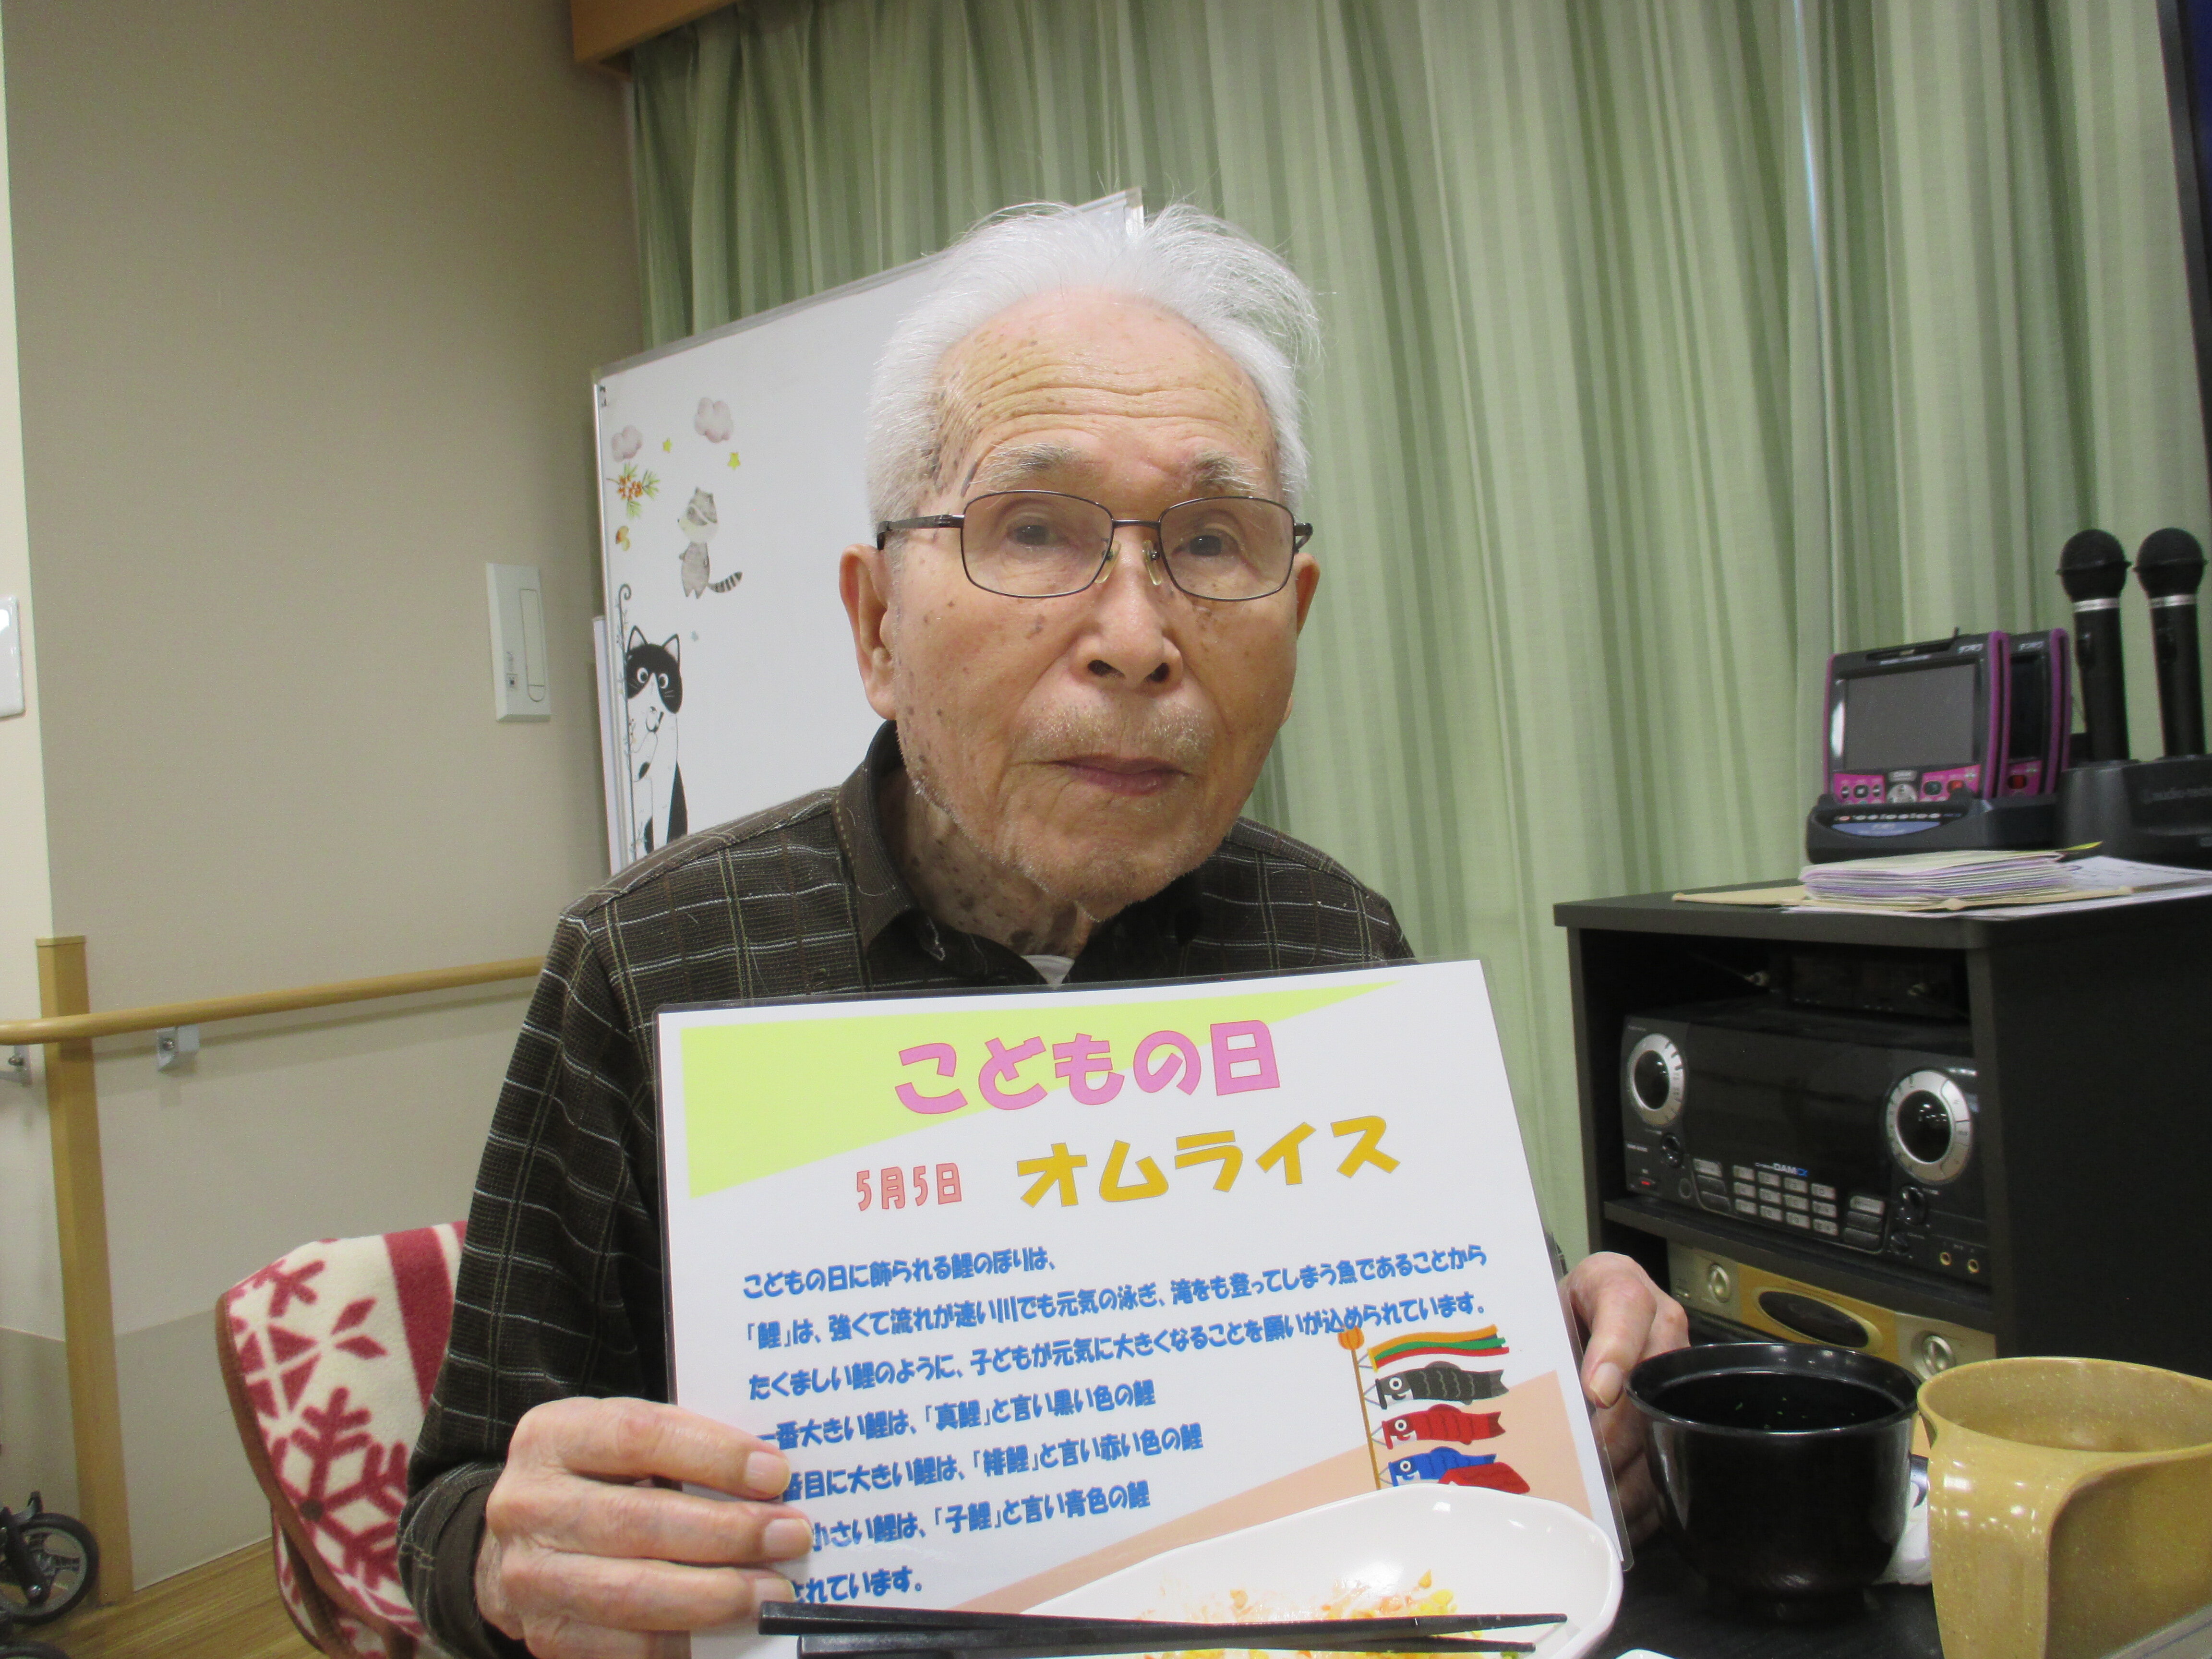 こどもの日
5月5日 オムライス
こどもの日に飾られる鯉のぼりは、
「鯉」は、強くて流れが速い川でも元気の泳ぎ、滝をも登ってしまう魚であることから
たくましい鯉のように、子どもが元気に大きくなることを願いが込められています。
一番大きい鯉は、「真鯉」と言い黒い色の鯉
番目に大きい鯉は、「緋鯉」と言い赤い色の鯉
小さい鯉は、「子鯉」と言い青色の鯉
されています。
DAM